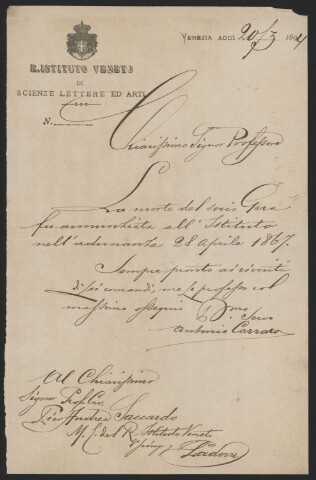 R. ISTITUTO VENETO
DI
SCIENZE LETTERE ED ARTI
N.
VENEZIA ADDÌ 20/3 1894
Chiarissimo Signor Professore
La morte del socio Gera
fu annunciata all'Istituto
nell'adunanza 28 aprile 1867.
Sempre pronto ai riveriti
di Lei comandi, me Le professo col
massimo ossequio
Antonio Carraro
Al Chiarissimo
Signor Prof. Cav.
Pier Andrea Saccardo
M. E. del R. Istituto Veneto
Padova